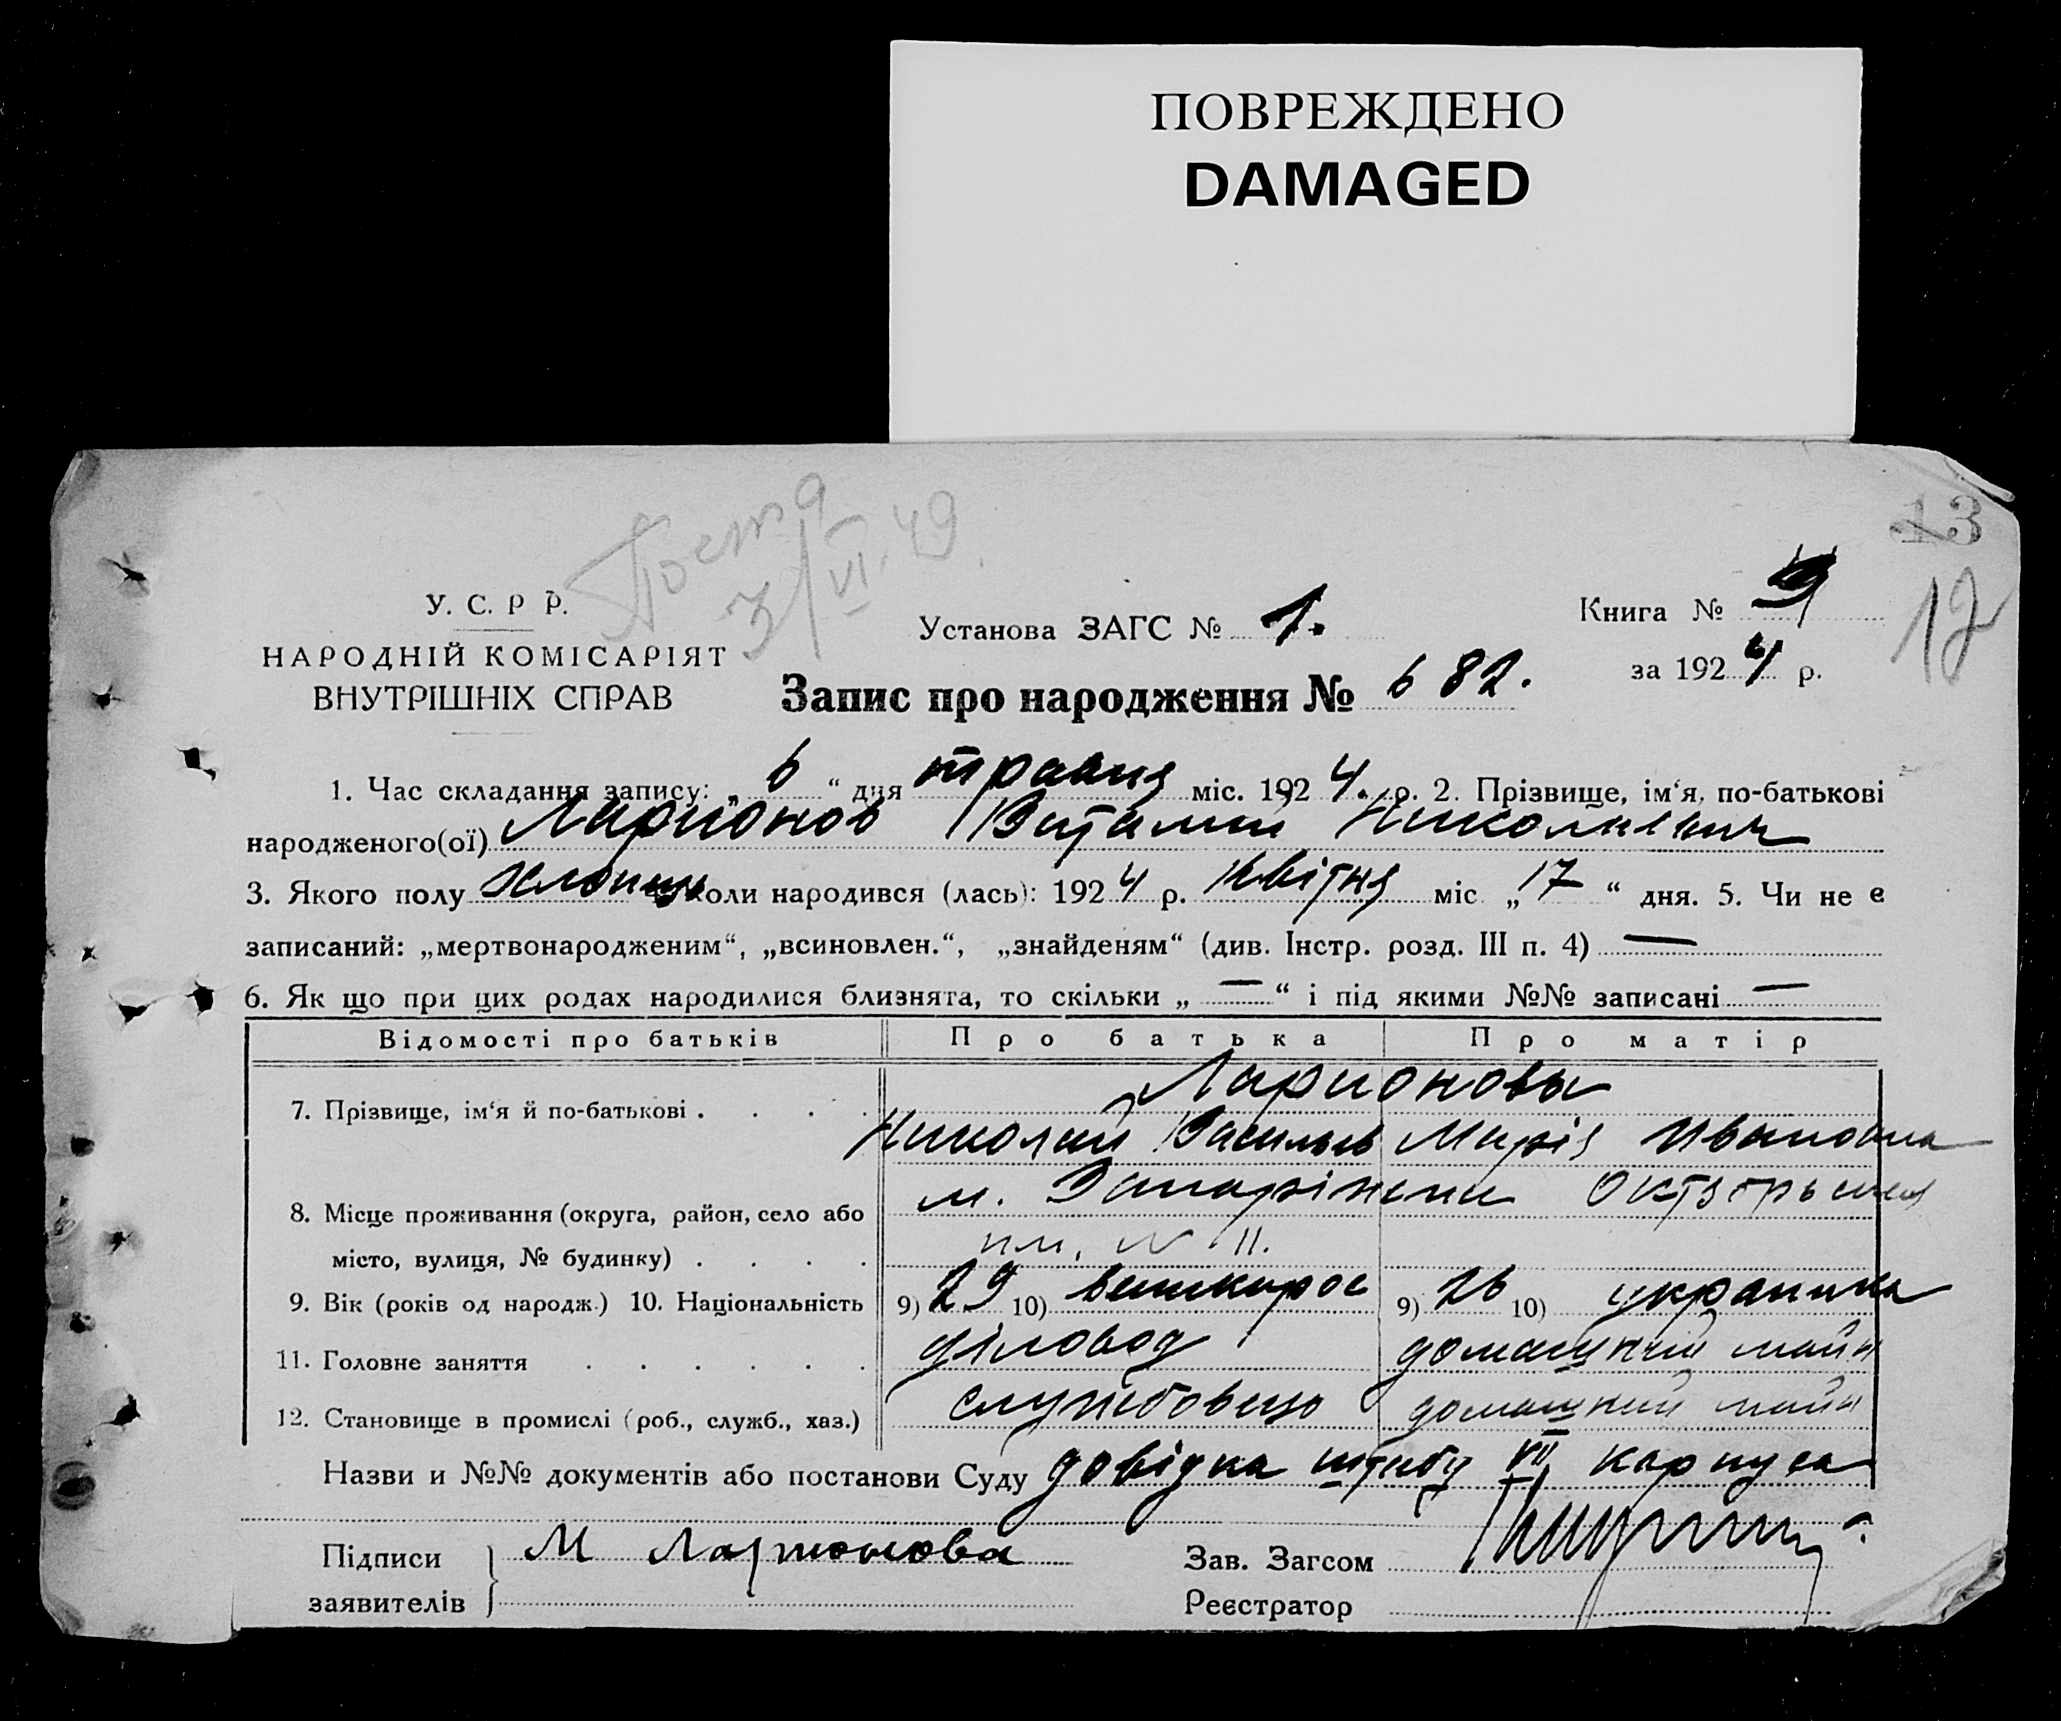 ПОВРЕЖДЕНО
DAMAGED
13
12
3/VI.49
У. С. Р Р.
НАРОДНІЙ КОМІСАРІЯТ
ВНУТРІШНІХ СПРАВ
Установа ЗАГС № 1.
Книга №
за 1924 р.
Запис про народження № 682.
1. Час складання запису: „ 6 “ дня травня міс. 1924. р. 2. Прізвище, ім‘я, по-батькові
народженого(ої) Ларионов Виталий Николаевич
3. Якого полу хлопець коли народився (лась): 1924 р. квітня міс „ 17 “ дня. 5. Чи не є
записаний: „мертвонародженим“, „всиновлен.“, „знайденям“ (див. Інстр. розд. III п. 4) —
6. Як що при цих родах народилися близнята, то скільки „ — “ і під якими №№ записані —
Відомості про батьків Про батька Про матір
7. Прізвище, ім‘я й по-батькові . . . . Ларионовы
Николай Васильев Марія Ивановна
8. Місце проживання (округа, район, село або м. Запоріжжя
місто, вулиця, № будинку) . . . . № 11.
9. Вік (років од народж.) 10. Національність 9) 29 10) 9) 26 10) украинка
11. Головне заняття . . . . . . діловод домашній
12. Становище в промислі (роб., служб., хаз.) службовець домашний
Назви и №№ документів або постанови Суду довідка штабу VII корпуса
Підписи М Ларионова Зав. Загсом
заявителів Реєстратор